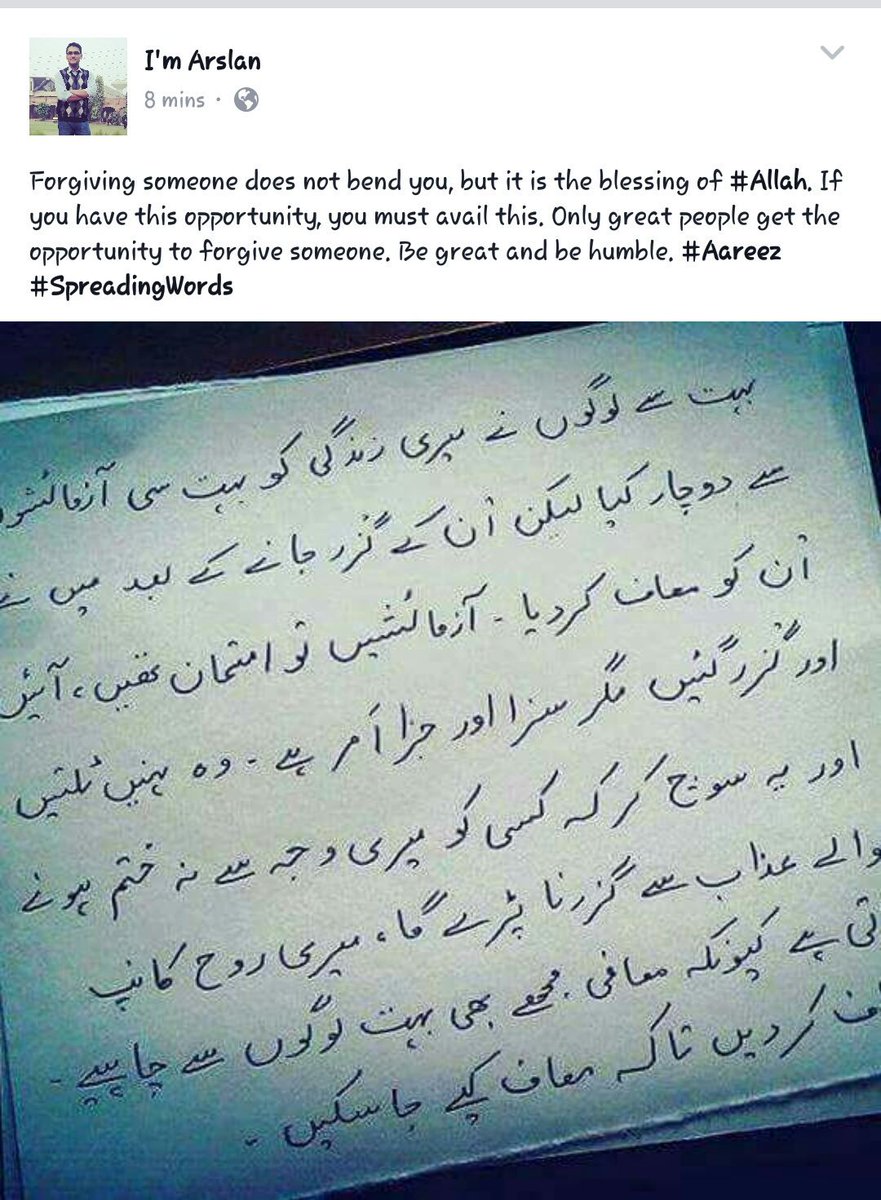 I'm Arslan
8 mins
Forgiving someone does not bend you, but it is the blessing of #Allah. If
you have this opportunity, you must avail this. Only great people get the
opportunity to forgive someone. Be great and be humble. #Aareez
#SpreadingWords
بہت سے لوگوں نے میری زندگی کو بہت سی آزمائشو
سے دوچار کیا لیکن اُن کے گُزر جانے کے بعد میں نے
اُن کو معاف کردیا ۔ آزمائشیں تو امتحان تھیں، آئیں
اور گُزر گئیں مگر سزا اور جزا اَمر ہے ۔ وہ نہیں ٹلتیں
اور یہ سوچ کر کہ کسی کو میری وجہ سے نہ ختم ہونے
والے عذاب سے گزرنا پڑے گا، میری روح کانپ
تی ہے کیونکہ معافی مجھے بھی بہت لوگوں سے چاہیے ۔
ف کر دیں تاکہ معاف کیے جا سکیں ۔